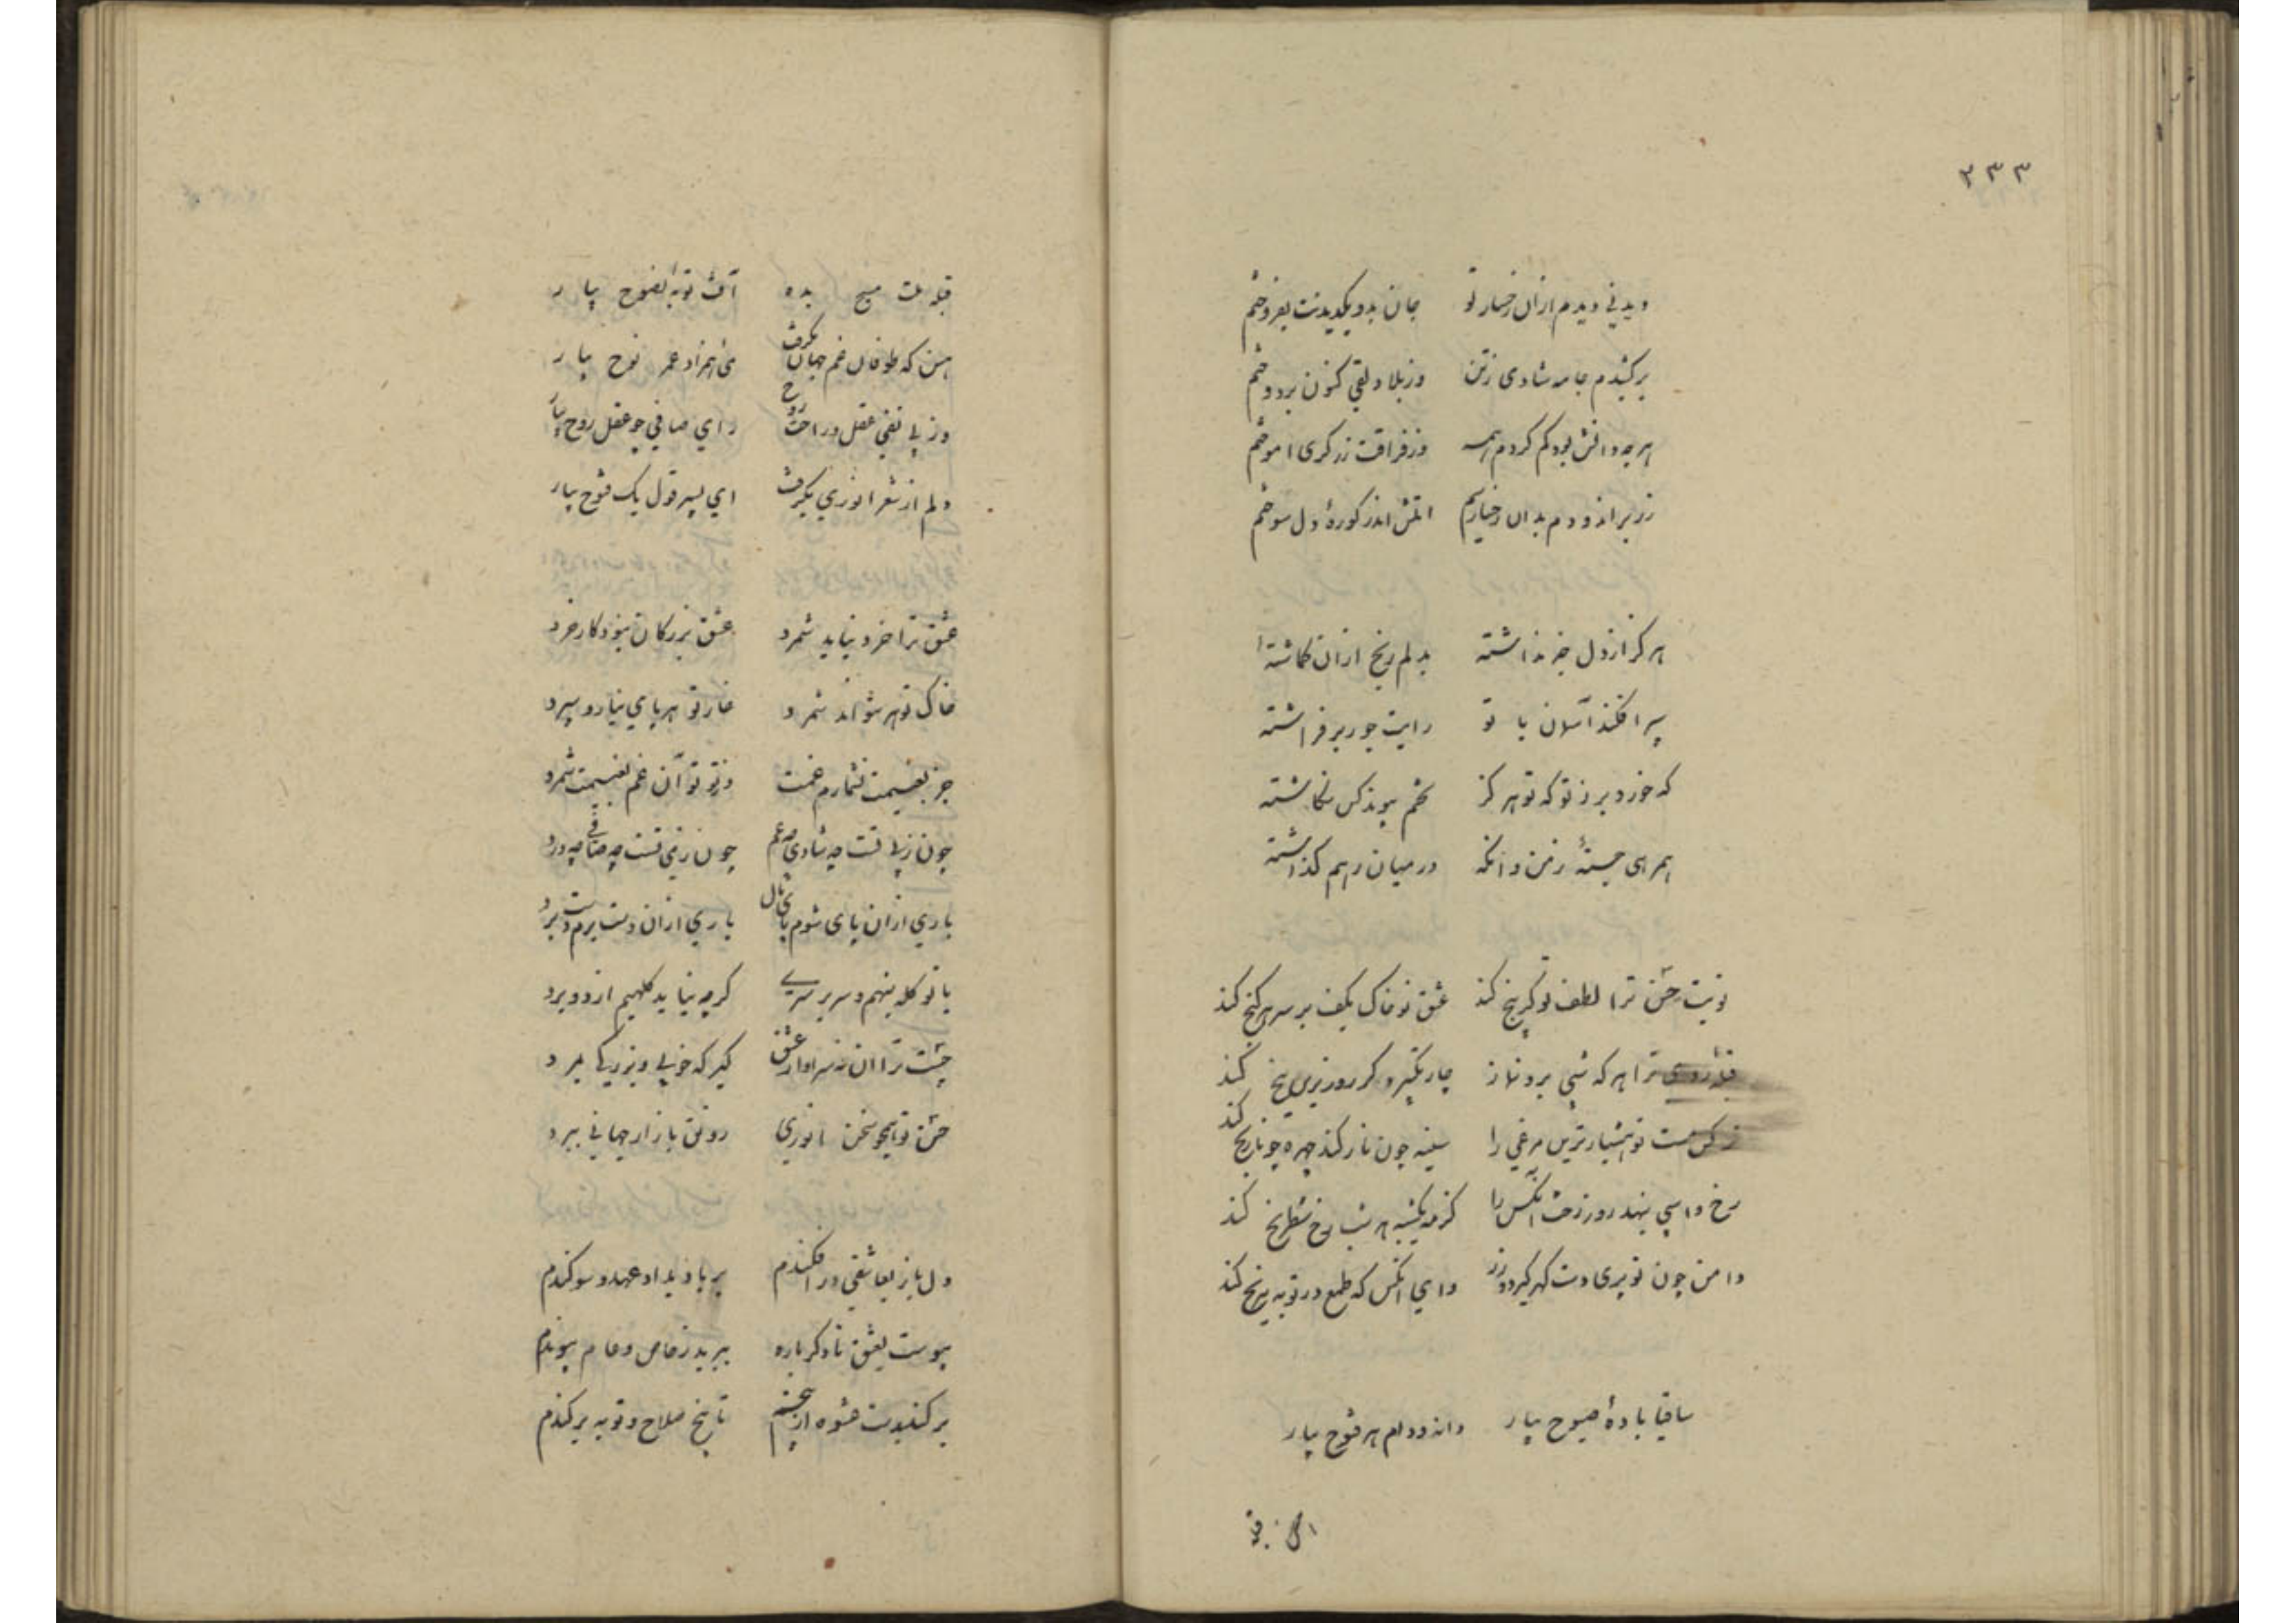 ۳۳۳
دیدنی دیدم ازان رخسار تو جان بدو یکدیدنت بفروختم
برکشیدم جامه شادی ز تن وز بلا دلقی کنون بر دوختم
هرچه دانش بود کم کردم همه وز فراقت زرکری اموختم
زر بر اندودم بدان رخساریم اتش اندر کورهٔ دل سوختم
هرکز از دل خبر نداشتهٔ بدلم رنج ازان کماشتهٔ
سپر افکند آسمان با تو رایت جور بر فراشتهٔ
که خورد بر ز تو که تو هرکز تخم پیوند کس نکاشتهٔ
همرهی جستهٔ ز من وانکه در میان رهم کذاشتهٔ
نوبت حسن ترا لطف تو کر پنج کند عشق تو خاک بکف بر سر هر کنج کند
قبلهٔ روی ترا هر که شبی برد نماز چار تکبیر دکر روز برین پنج کند
نرکس مست تو هشیارترین مرغی را سینه چون نار کند چهره چو نارنج کند
رخ و اسپی بنهد روز رخت انکس را کز مه یکشبه هر شب رخ شطرنج کند
دامن چون تو پری دست کهر کیرد و زر وای انکس که طمع در تو به بی رنج کند
ساقیا بادهٔ صبوح بیار دانه دام هر فتوح بیار
قبله ملت مسیح بده آفت توبهٔ نصوح بیار
هین که طوفان غم جهان بکرفت می همزاد عمر نوح بیار
وز پی نفی عقل و راحت روح رای صافی چو عقل روح بیار
دلم از شعر انوری بکرفت ای پسر قول یک فتوح بیار
عشق ترا خرد نباید شمرد عشق بزرکان نبود کار خرد
خاک تو هر شواند شمرد خار تو هر پای نیارد سپرد
جز بغنیمت نشمارم غمت وز تو توان غم بغنیمت شمرد
چون ز پی تست چه شادی چه غم چون ز می تست چه صافی چه درد
باری ازان پای شوم پای مال باری ازان دست برم دست برد
با تو کله بنهم و سر بر سری کرچه نیاید کلهیم از دو برد
چشمت ترا ان نه سزاوار عشق کیر که خوبی و بزرکی بمرد
حسن تو همچو سخن انوری رونق بازار جهانی ببرد
دل باز بعاشقی در افکندم بر باد بداد عهد و سوکندم
پیوست بعشق تا دکرباره ببرید ز خاص و عام پیوندم
برکند بدست عشوه از بیخم تا بیخ صلاح و توبه برکندم